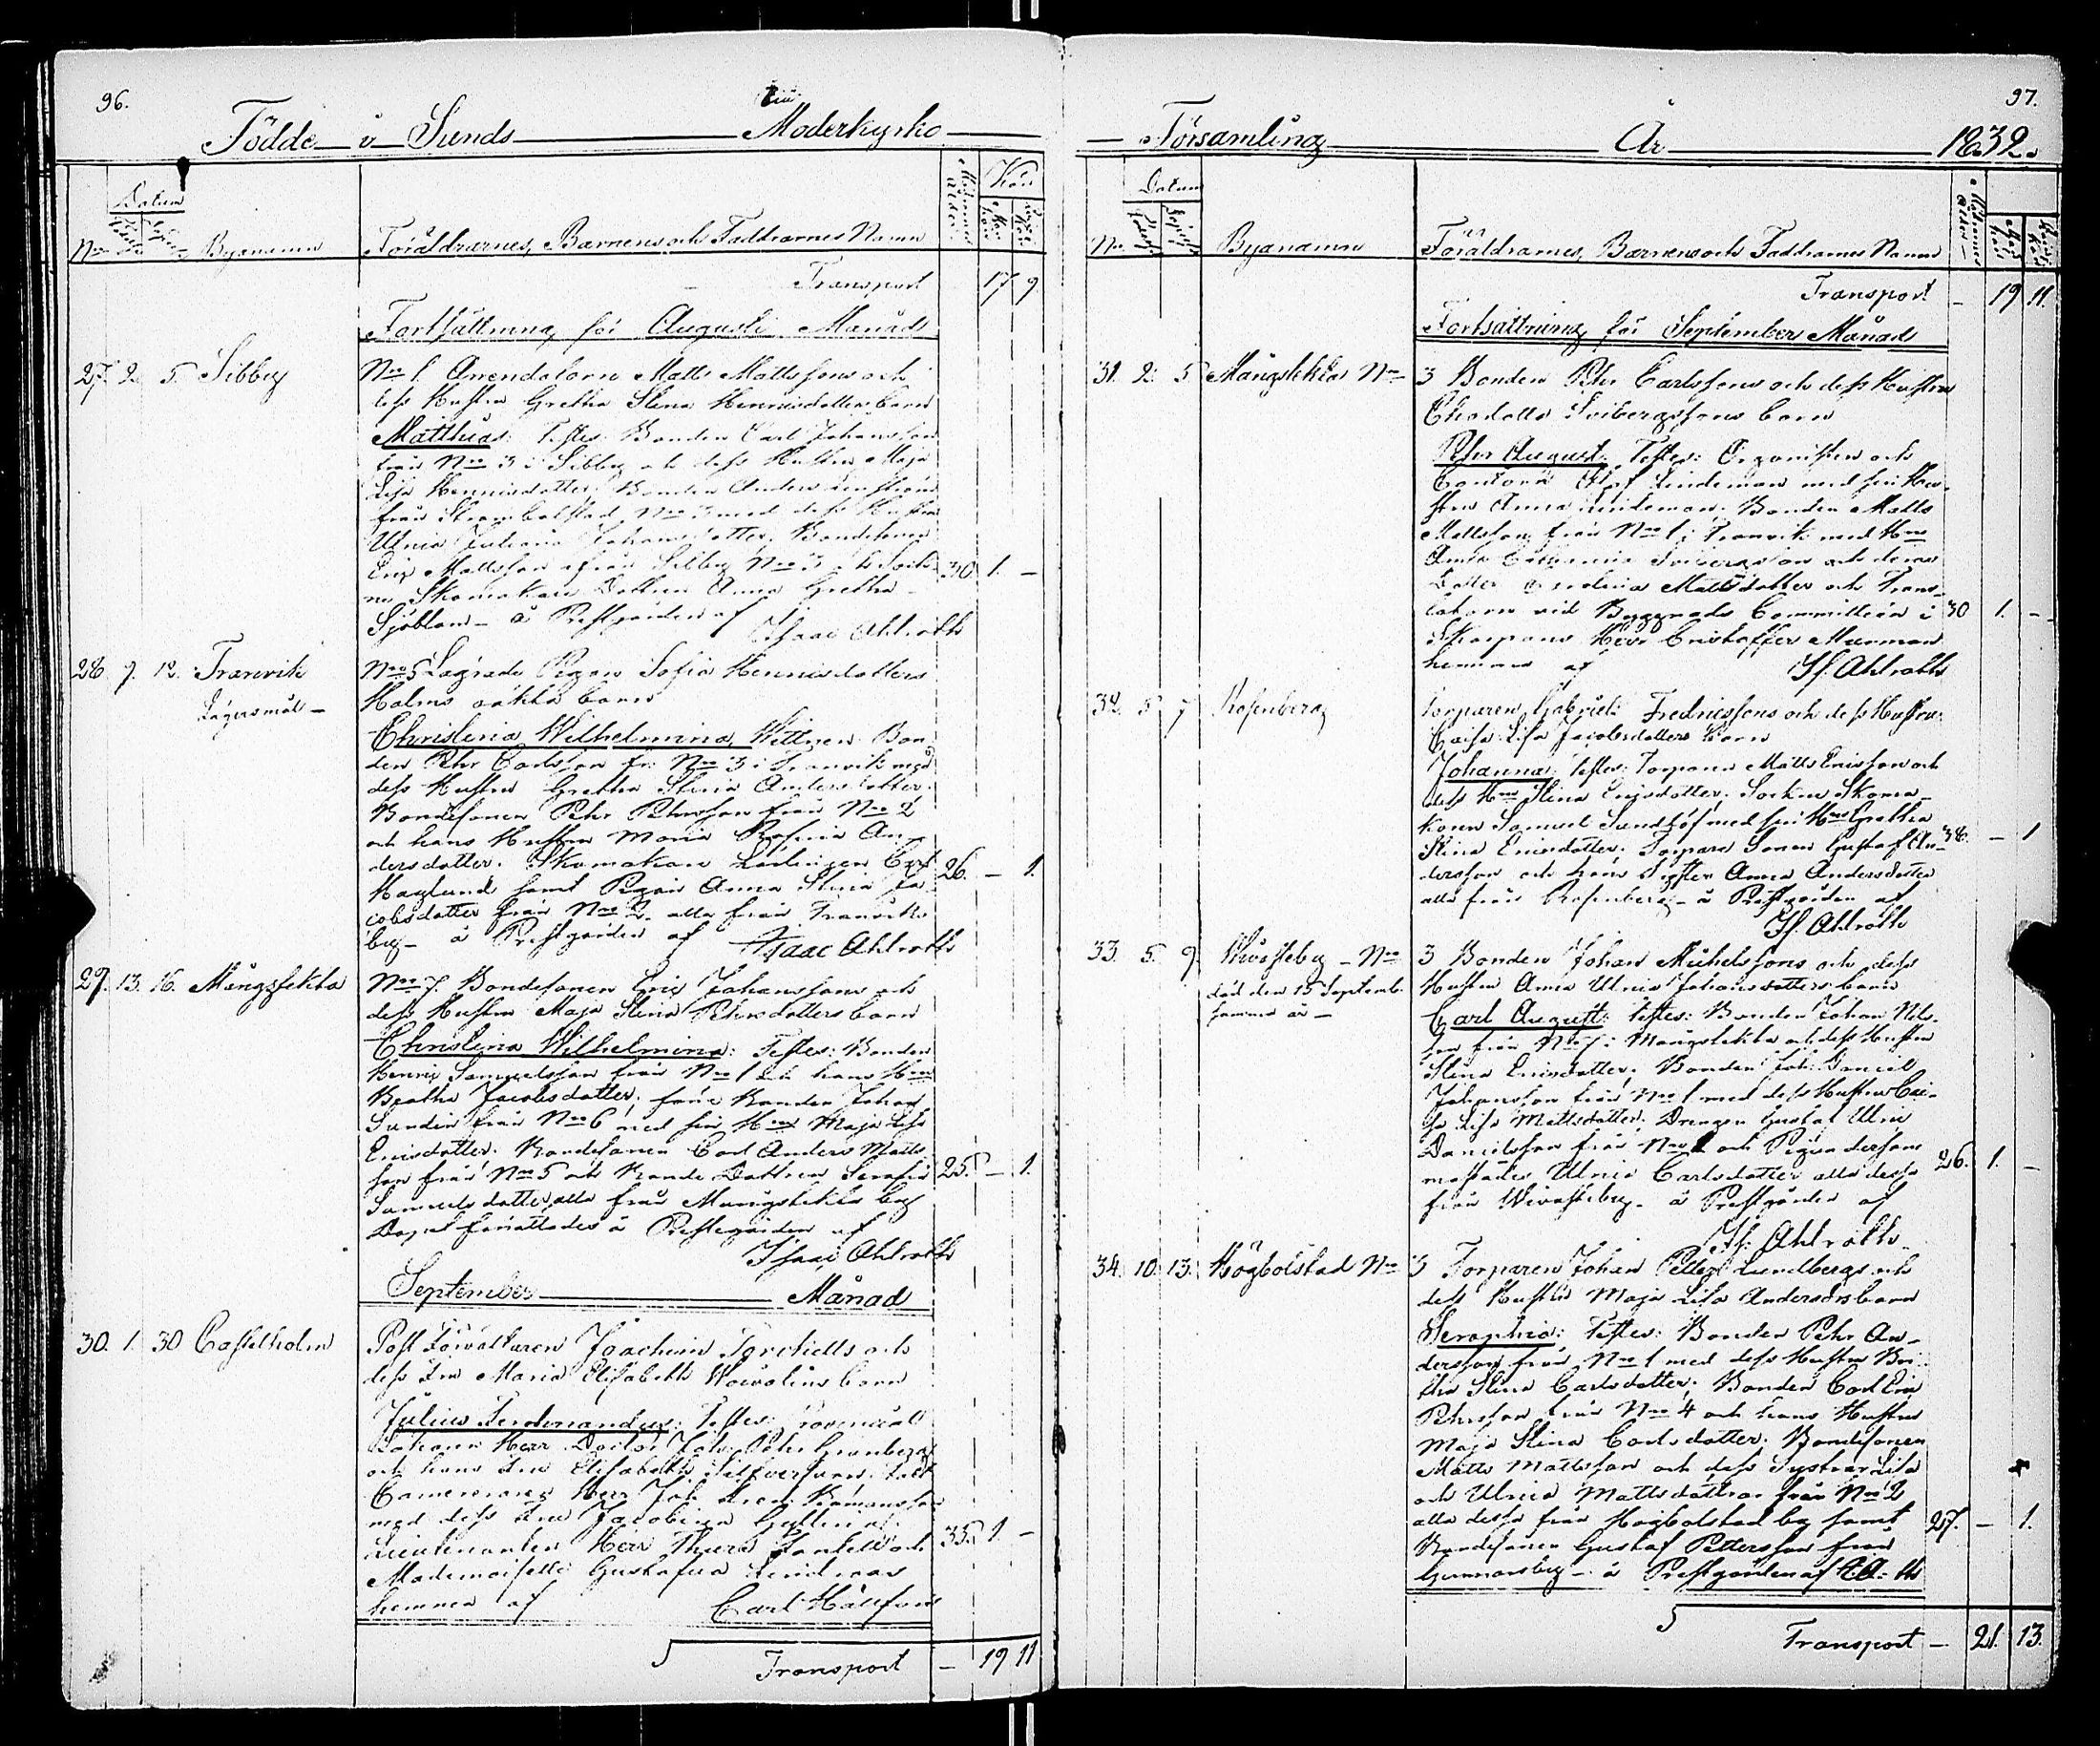 96.
Födde i Sunds Moderkyrko
Datum
Kön
Nro Byanamn Föräldrarnes, Barnens och Faddrarnes Namn
Transport 17 9
Fortsättning för Augusti Månad
27. 2. 5. Sibby Nro 1. Arrendatorn Matts Mattssons och
dess Hustru Gretha Stina Henricsdotters barn
Matthias: Testes: Bonden Carl Johansson
från Nro 3 i Sibby och dess Hustru Maja
Lisa Henricsdotter. Bonden Anders
från Strömbolstad Nro 3 med dess Hustru
Ulrica Juliana Johansdotter. Bondesonen
Eric Mattsson från Sibby Nro 3 och Sock- 30 1. -
ne Skomakare Dottren Anna Gretha
Sjöblom - å Prestgården af
Isaac Ahlroth
28 7. 12. Tranvik Nro 5 Lägrade Pigan Sofia Henricsdotters
Lägersmål - Holms oäkta barn
Christina Wilhelmina, Wittnen: Bon-
den Pehr Carlsson fr: Nro 3 i Tranvik med
dess Hustru Gretha Stina Andersdotter.
Bondesonen Pehr Pehrsson från Nro 2
och hans Hustru Maria Rosina An-
dersdotter. Skomakare Lärlingen Carl 26. - 1.
Haglund samt Pigan Anna Stina Ja-
cobsdotter från Nro 2. alla från Tranviks
by - å Prestgården af Isaac Ahlroth
29. 13. 16. Mångstekta Nro 7. Bondesonen Eric Johanssons och
dess Hustru Maja Stina Pehrsdotters barn
Christina Wilhelmina: Testes: Bonden
Henric Samuelsson från Nro 1 och hans Hru
Beatha Jacobsdotter, förre Bonden Johan
Sundin från Nro 6 med sin Hru Maja Lisa
Ericsdotter. Bondesonen Carl Anders Matts-
son från Nro 5 och Bonde Dottren Serafia 25. - 1.
Samuelsdotter, alla från Mångstekta by
Dopet förrättades å Prestegården af
Isaac Ahlroth
September Månad
30. 1. 30 Castelholm Post Förvaltaren Joachim Torckells och
dess Fru Maria Elisabeth Warolins barn
Julius Ferdinandus: Testes: Provincial
Läkaren Herr Doctor Joh: Pehr Granberg
och hans Fru Elisabeth
Camererare Herr Joh:
med dess Fru Jacobina
Lieutenanten Herr Thure och 35. 1. -
Mademoiselle Gustafva
hemma af Carl Hällfors
Transport - 19 11
97.
Församling År 1832.
Datum
Nro Byanamn Föräldrarnes, Barnens och Faddrarnes Namn
Transport - 19 11.
Fortsättning för September Månad
31. 2. 5 Mångstekta Nro 3 Bonden Pehr Carlssons och dess Hustru
Charlotta Svibergssons barn
Pehr August. Testes: Organisten och
Cantorn Olof Lindeman med sin Hu-
stru Anna Lindeman. Bonden Matts
Mattsson från Nro 1 i Tranvik med Hru
Anna Catharina Svibergsson och deras
Dotter Mattsdotter och Trans-
latorn vid Byggnads Committeen i 30 1. -
Skarpans Herr Cristoffer Murman
hemma af Is. Ahlroth
32. 5 7 Rosenberg Torparen Gabriel Fredricssons och dess Hustru
Caisa Lisa Jacobsdotters barn
Johanna: Testes: Torparen Matts Ericsson och
dess Hru Stina Ericsdotter. Socken Skoma-
karen Samuel Sundlöf med sin Hru Gretha
Stina Ericsdotter. Torpare Sonen Gustaf An- 38. - 1
dersson och hans Syster Anna Andersdotter
alla från Rosenberg - å Prestgården af
Is. Ahlroth
33. 5. 9 Wivasteby - Nro 3 Bonden Johan Michelssons och dess
död den 15 Septemb. Hustru Anna Ulrica Johansdotters barn
samma år - Carl August: Testes: Bonden Johan Nils-
son från Nro 7 i Mångstekta och dess Hustru
Stina Ericsdotter. Bonden Joh: Daniel
Johansson från Nro 1 med dess Hustru Cai-
sa Lisa Mattsdotter. Drengen Gustaf Ulric
Danielsson från Nro 1 och Pigan
Ulrica Carlsdotter alla dessa 26. 1. -
från Wivasteby - å Prestgården af
Is. Ahlroth
34. 10. 13. Högbolstad Nro 3 Torparen Johan Petter Lundbergs och
dess Hustru Maja Lisa Anderssons barn
Seraphia: Testes: Bonden Pehr An-
dersson från Nro 1 med dess Hustru Bri-
tha Stina Carlsdotter. Bonden Carl Eric
Pehrsson från Nro 4 och hans Hustru
Maja Stina Carlsdotter. Bondesonen
Matts Mattsson och dess Systrar Lisa
och Ulrica Mattsdöttrar från Nro 2
alla dessa från Högbolstad by samt 27. - 1.
Bondesonen Gustaf Pettersson från
Gunnarsby - å Prestgården af I. A-th
Transport - 21. 13.